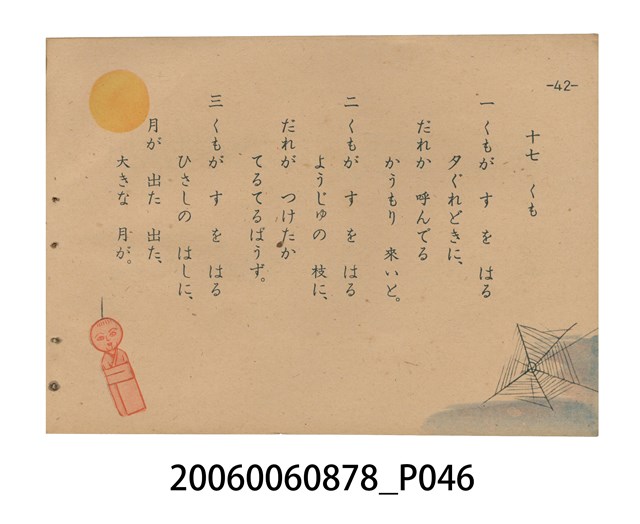 -42-
十七 くも
一 くもが す を はる
夕ぐれどきに、
だれか 呼んでる
かうもり 來いと。
二 くもが す を はる
ようじゅの 枝に、
だれが つけたか
てるてるばうず。
三 くもが す を はる
ひさしの はしに、
月が 出た 出た、
大きな 月が。
20060060878_P046